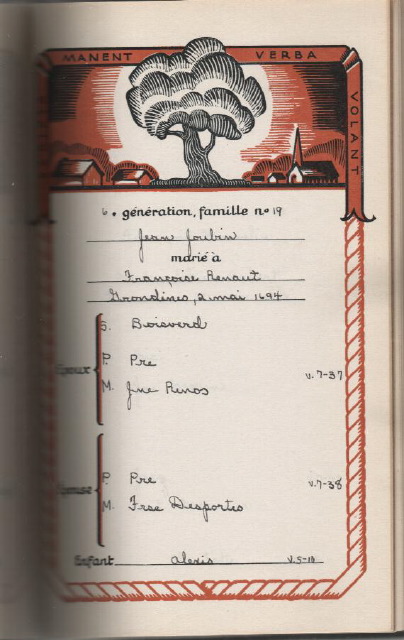 MANENT VERBA
VOLANT
6e génération, famille no 19
Jean Joubin
marié à
Françoise Renaut
Grondines, 2 mai 1694
S. Boisverd
Époux
P. Pre
v. 7-37
M. Jne Renos
Épouse
P. Pre
v. 7-38
M. Frse Desportes
Enfant Alexis v. 5-10